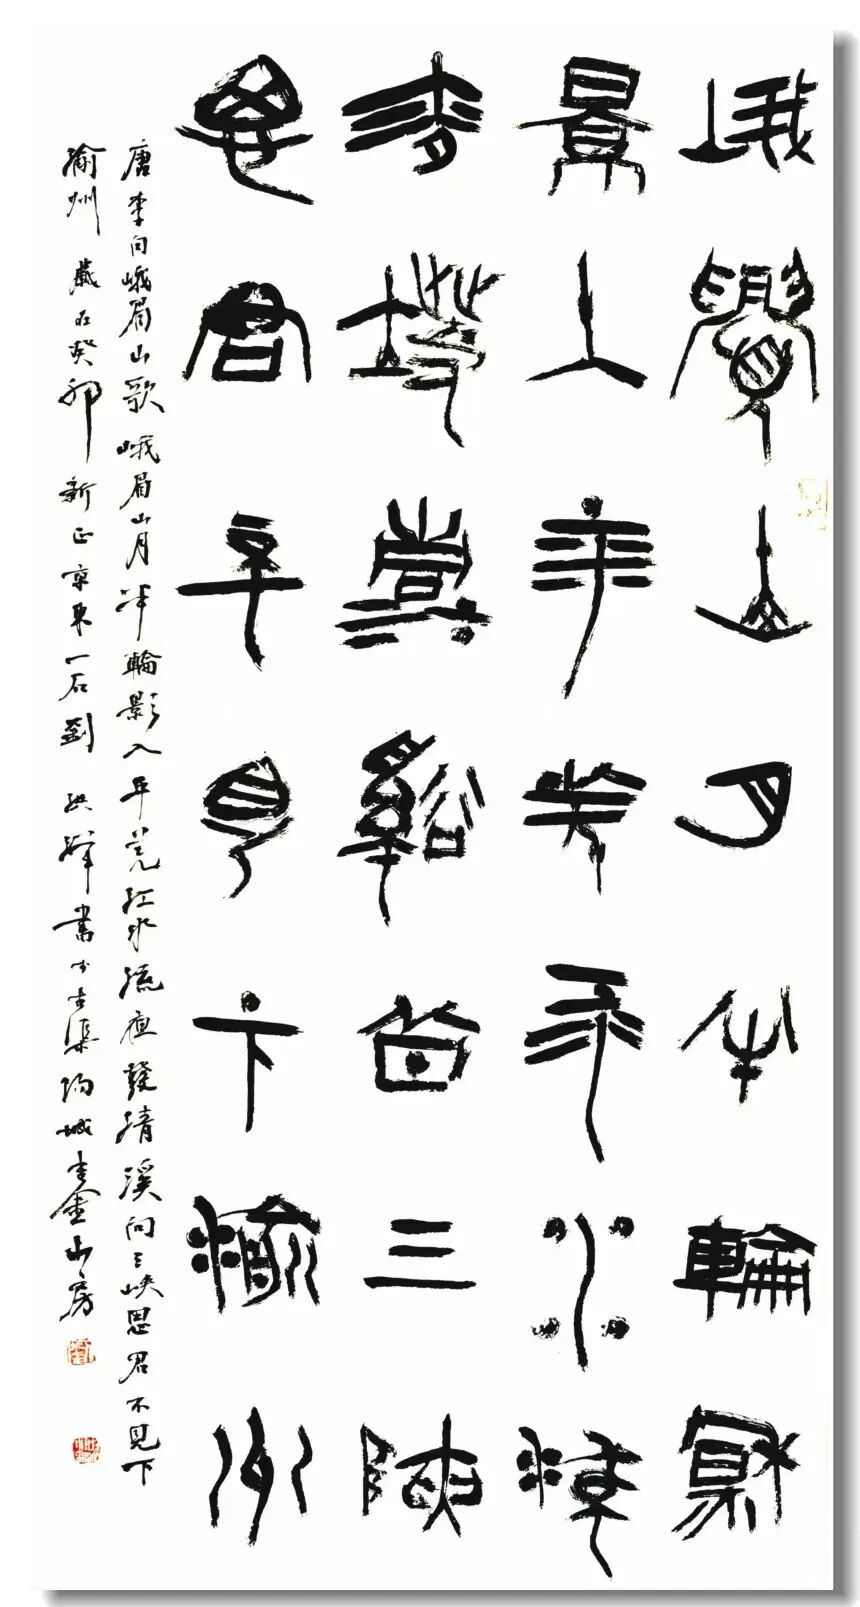 峨眉山月半輪秋
影入平羌江水流
夜發清溪向三峽
思君不見下渝州
唐李白峨眉山歌峨眉山月半輪影入平羌江水流夜發清溪向三峽思君不見下
渝州歲在癸卯新正京東一石劉洪書於古渠陽城金山房